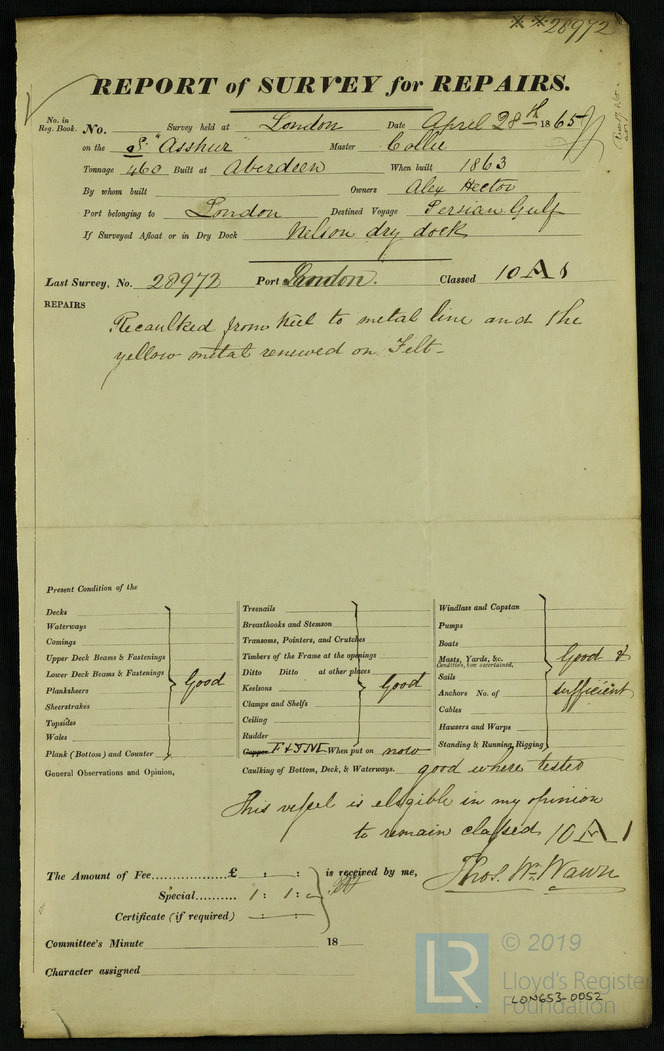 28972
REPORT of SURVEY for REPAIRS.
No. in Reg. Book. No. Survey held at London Date April 28th 1865
on the S. "Asshur" Master Collie
Tonnage 460 Built at Aberdeen When built 1863
By whom built Owners Alex Hector
Port belonging to London Destined Voyage Persian Gulf
If Surveyed Afloat or in Dry Dock Nelson dry dock
Last Survey, No. 28972 Port London. Classed 10 A 1
REPAIRS
Recaulked from keel to metal line and the
yellow metal renewed on Felt-
Present Condition of the
Decks
Waterways
Comings
Upper Deck Beams & Fastenings
Lower Deck Beams & Fastenings
Planksheers
Sheerstrakes
Topsides
Wales
Plank (Bottom) and Counter
Good
Treenails
Breasthooks and Stemson
Transoms, Pointers, and Crutches
Timbers of the Frame at the openings
Ditto Ditto at other places
Keelsons
Clamps and Shelfs
Ceiling
Rudder
Good
Copper F & YM When put on now
Windlass and Capstan
Pumps
Boats
Masts, Yards, &c.
Condition, how ascertained.
Sails
Anchors No. of
Cables
Hawsers and Warps
Standing & Running Rigging
Good &
sufficient
Caulking of Bottom, Deck, & Waterways. good where tested
General Observations and Opinion,
This vessel is eligible in my opinion
to remain classed 10 A 1
The Amount of Fee................£ : : is received by me,
Special.......... 1 : 1 : -
Thos. Wm. Wawn
Certificate (if required) : :
Committee's Minute 18
Character assigned
LR
© 2019
Lloyd's Register
Foundation
LON653-0052